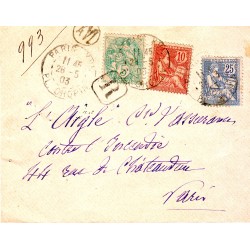 993
PARIS
11 45
26 - 5
03
R
5
10
25
"L'Aigle" Cie d'assurances
Contre l'Incendie
44 rue de Châteaudun
Paris